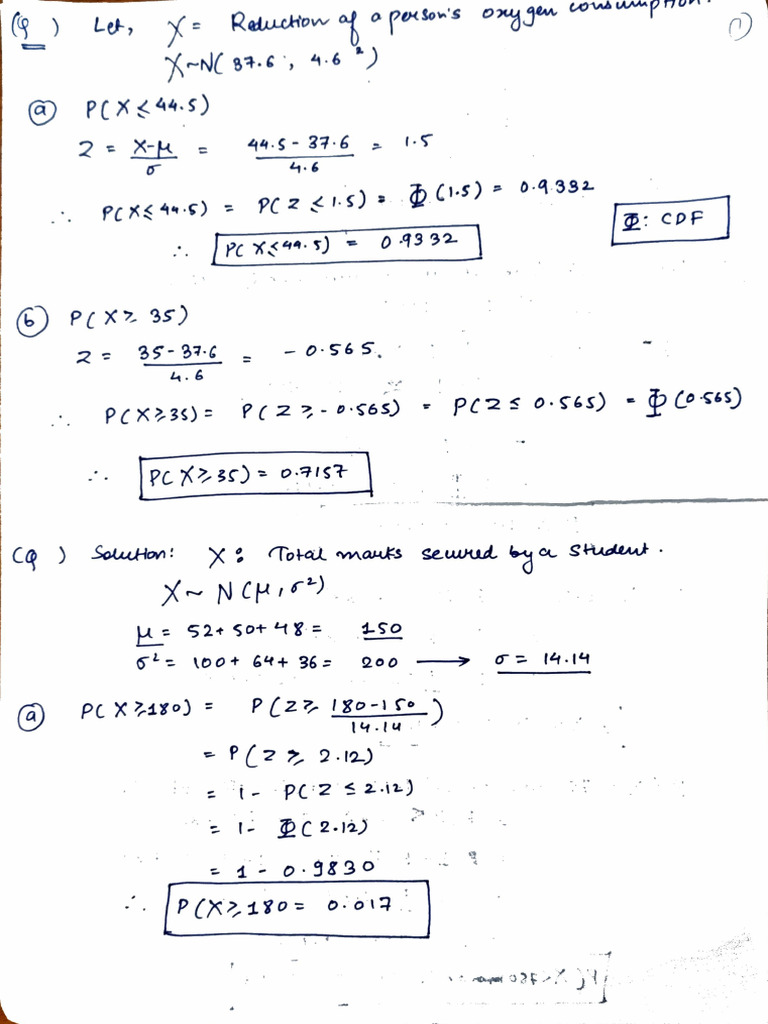 (Q) Let, X = Reduction of a person's oxygen consumption.
①
X~N(37.6, 4.6²)
ⓐ P(X ≤ 44.5)
Z = X-μ/σ = 44.5-37.6/4.6 = 1.5
∴ P(X ≤ 44.5) = P(Z ≤ 1.5) = Φ(1.5) = 0.9332
Φ: CDF
∴ P(X ≤ 44.5) = 0.9332
ⓑ P(X ≥ 35)
Z = 35-37.6/4.6 = -0.565.
∴ P(X ≥ 35) = P(Z ≥ -0.565) = P(Z ≤ 0.565) = Φ(0.565)
∴ P(X ≥ 35) = 0.7157
(Q ) Solution: X: Total marks secured by a student.
X~ N(μ, σ²)
μ = 52+50+48 = 150
σ² = 100+64+36 = 200 → σ = 14.14
ⓐ P(X ≥ 180) = P(Z ≥ 180-150/14.14)
= P(Z ≥ 2.12)
= 1- P(Z ≤ 2.12)
= 1- Φ(2.12)
= 1 - 0.9830
∴ P(X ≥ 180 = 0.017